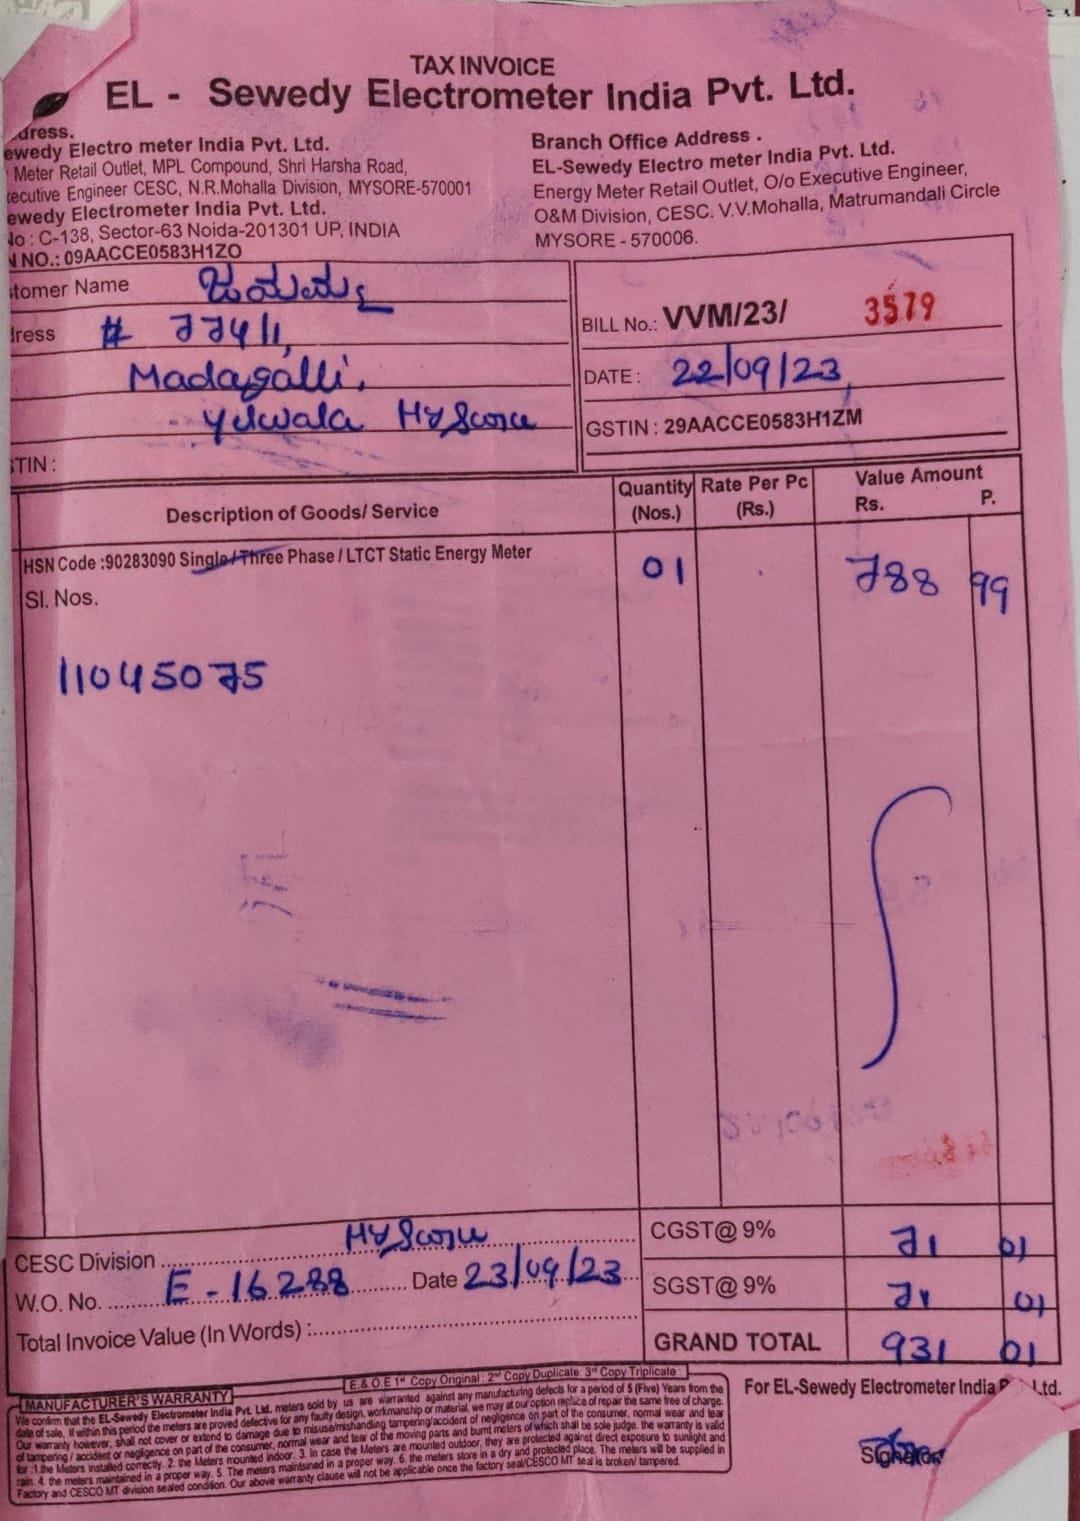 TAX INVOICE
EL - Sewedy Electrometer India Pvt. Ltd.
dress.
ewedy Electro meter India Pvt. Ltd.
Meter Retail Outlet, MPL Compound, Shri Harsha Road,
ecutive Engineer CESC, N.R.Mohalla Division, MYSORE-570001
ewedy Electrometer India Pvt. Ltd.
No : C-138, Sector-63 Noida-201301 UP, INDIA
N NO.: 09AACCE0583H1ZO
Branch Office Address .
EL-Sewedy Electro meter India Pvt. Ltd.
Energy Meter Retail Outlet, O/o Executive Engineer,
O&M Division, CESC. V.V.Mohalla, Matrumandali Circle
MYSORE - 570006.
tomer Name
dress # 774/1,
Madagalli,
Yelwala Hy
STIN :
BILL No.: VVM/23/ 3579
DATE : 22/09/23
GSTIN : 29AACCE0583H1ZM
Description of Goods/ Service Quantity (Nos.) Rate Per Pc (Rs.) Value Amount Rs. P.
HSN Code :90283090 Single/Three Phase / LTCT Static Energy Meter 01 788 99
Sl. Nos.
11045075
CESC Division
W.O. No. E-16288 Date 23/09/23
Total Invoice Value (In Words) :
CGST@ 9% 71 01
SGST@ 9% 71 01
GRAND TOTAL 931 01
E.& O.E 1st Copy Original : 2nd Copy Duplicate: 3rd Copy Triplicate :
MANUFACTURER'S WARRANTY
We confirm that the EL-Sewedy Electrometer India Pvt. Ltd. meters sold by us are warranted against any manufacturing defects for a period of 5 (Five) Years from the
date of sale. If within this period the meters are proved defective for any faulty design, workmanship or material, we may at our option replce of repair the same free of charge.
Our warranty however, shall not cover or extend to damage due to misuse/mishanding tampering/accident of negligence on part of the consumer, normal wear and tear
of tampering / accident or negligence on part of the consumer, normal wear and tear of the moving parts and burnt meters of which shall be sole judge. the warranty is valid
for :1.the Meters installed correctly. 2. the Meters mounted indoor. 3. In case the Meters are mounted outdoor, they are protected against direct exposure to sunlight and
rain. 4. the meters maintained in a proper way. 5. The meters maintained in a proper way. 6. the meters store in a dry and protected place. The meters will be supplied in
Factory and CESCO MT division sealed condition. Our above warranty clause will not be applicable once the factory seal/CESCO MT seal is broken/ tampered.
For EL-Sewedy Electrometer India P Ltd.